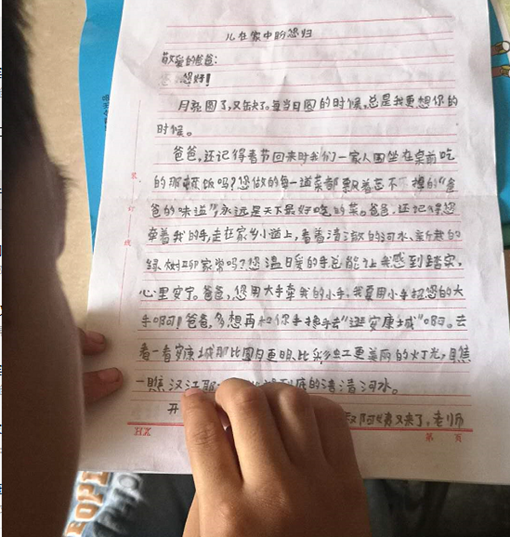 儿在家中盼您归
敬爱的爸爸:
您好!
月亮圆了,又缺了。每当月圆的时候,总是我更想你的
时候。
爸爸,还记得春节回来时我们一家人围坐在桌前吃
的那顿饭吗?您做的每一道菜都飘着芸不 樣的“爸
爸的味道”,永远是天下最好吃的菜。爸爸,还记得您
牵着我的手,走在家乡小道上,看着清澈的河水、
绿树 吗?您温日爱的手总能让我感到踏实,
心里安宁。爸爸,您用大手牵我的小手,我要用小手拉您的大
手啊!爸爸,多想再和你手挽手去“逛安康城”啊。去
看一看安康城那比圆月更明、比彩虹更美丽的灯光,目焦
一瞧汉江 到底的清清河水。
开
又来了,老师
HX
第 页
装
订
线